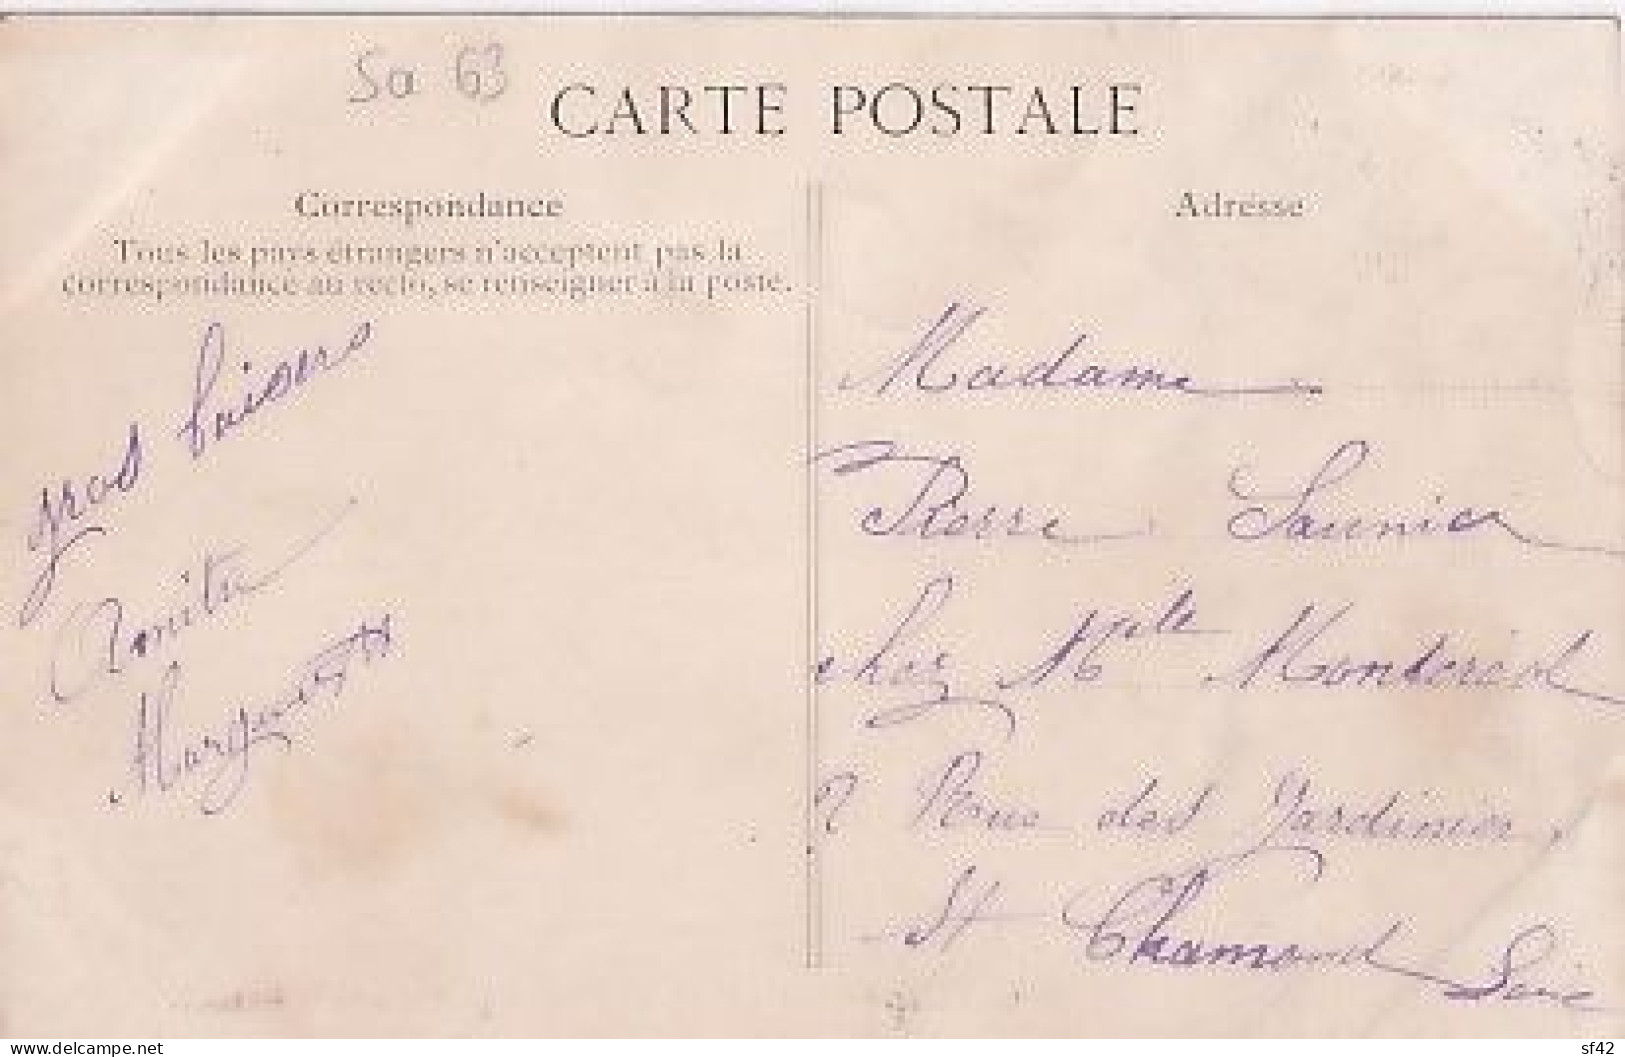 Sa 63
CARTE POSTALE
Correspondance
Tous les pays étrangers n'acceptent pas la
correspondance au recto, se renseigner à la poste.
gros baisers
Marguerite
Adresse
Madame
Pierre Saunier
chez Melle
Rue des Jardiniers
St Chamond Loire
www.delcampe.net
sf42